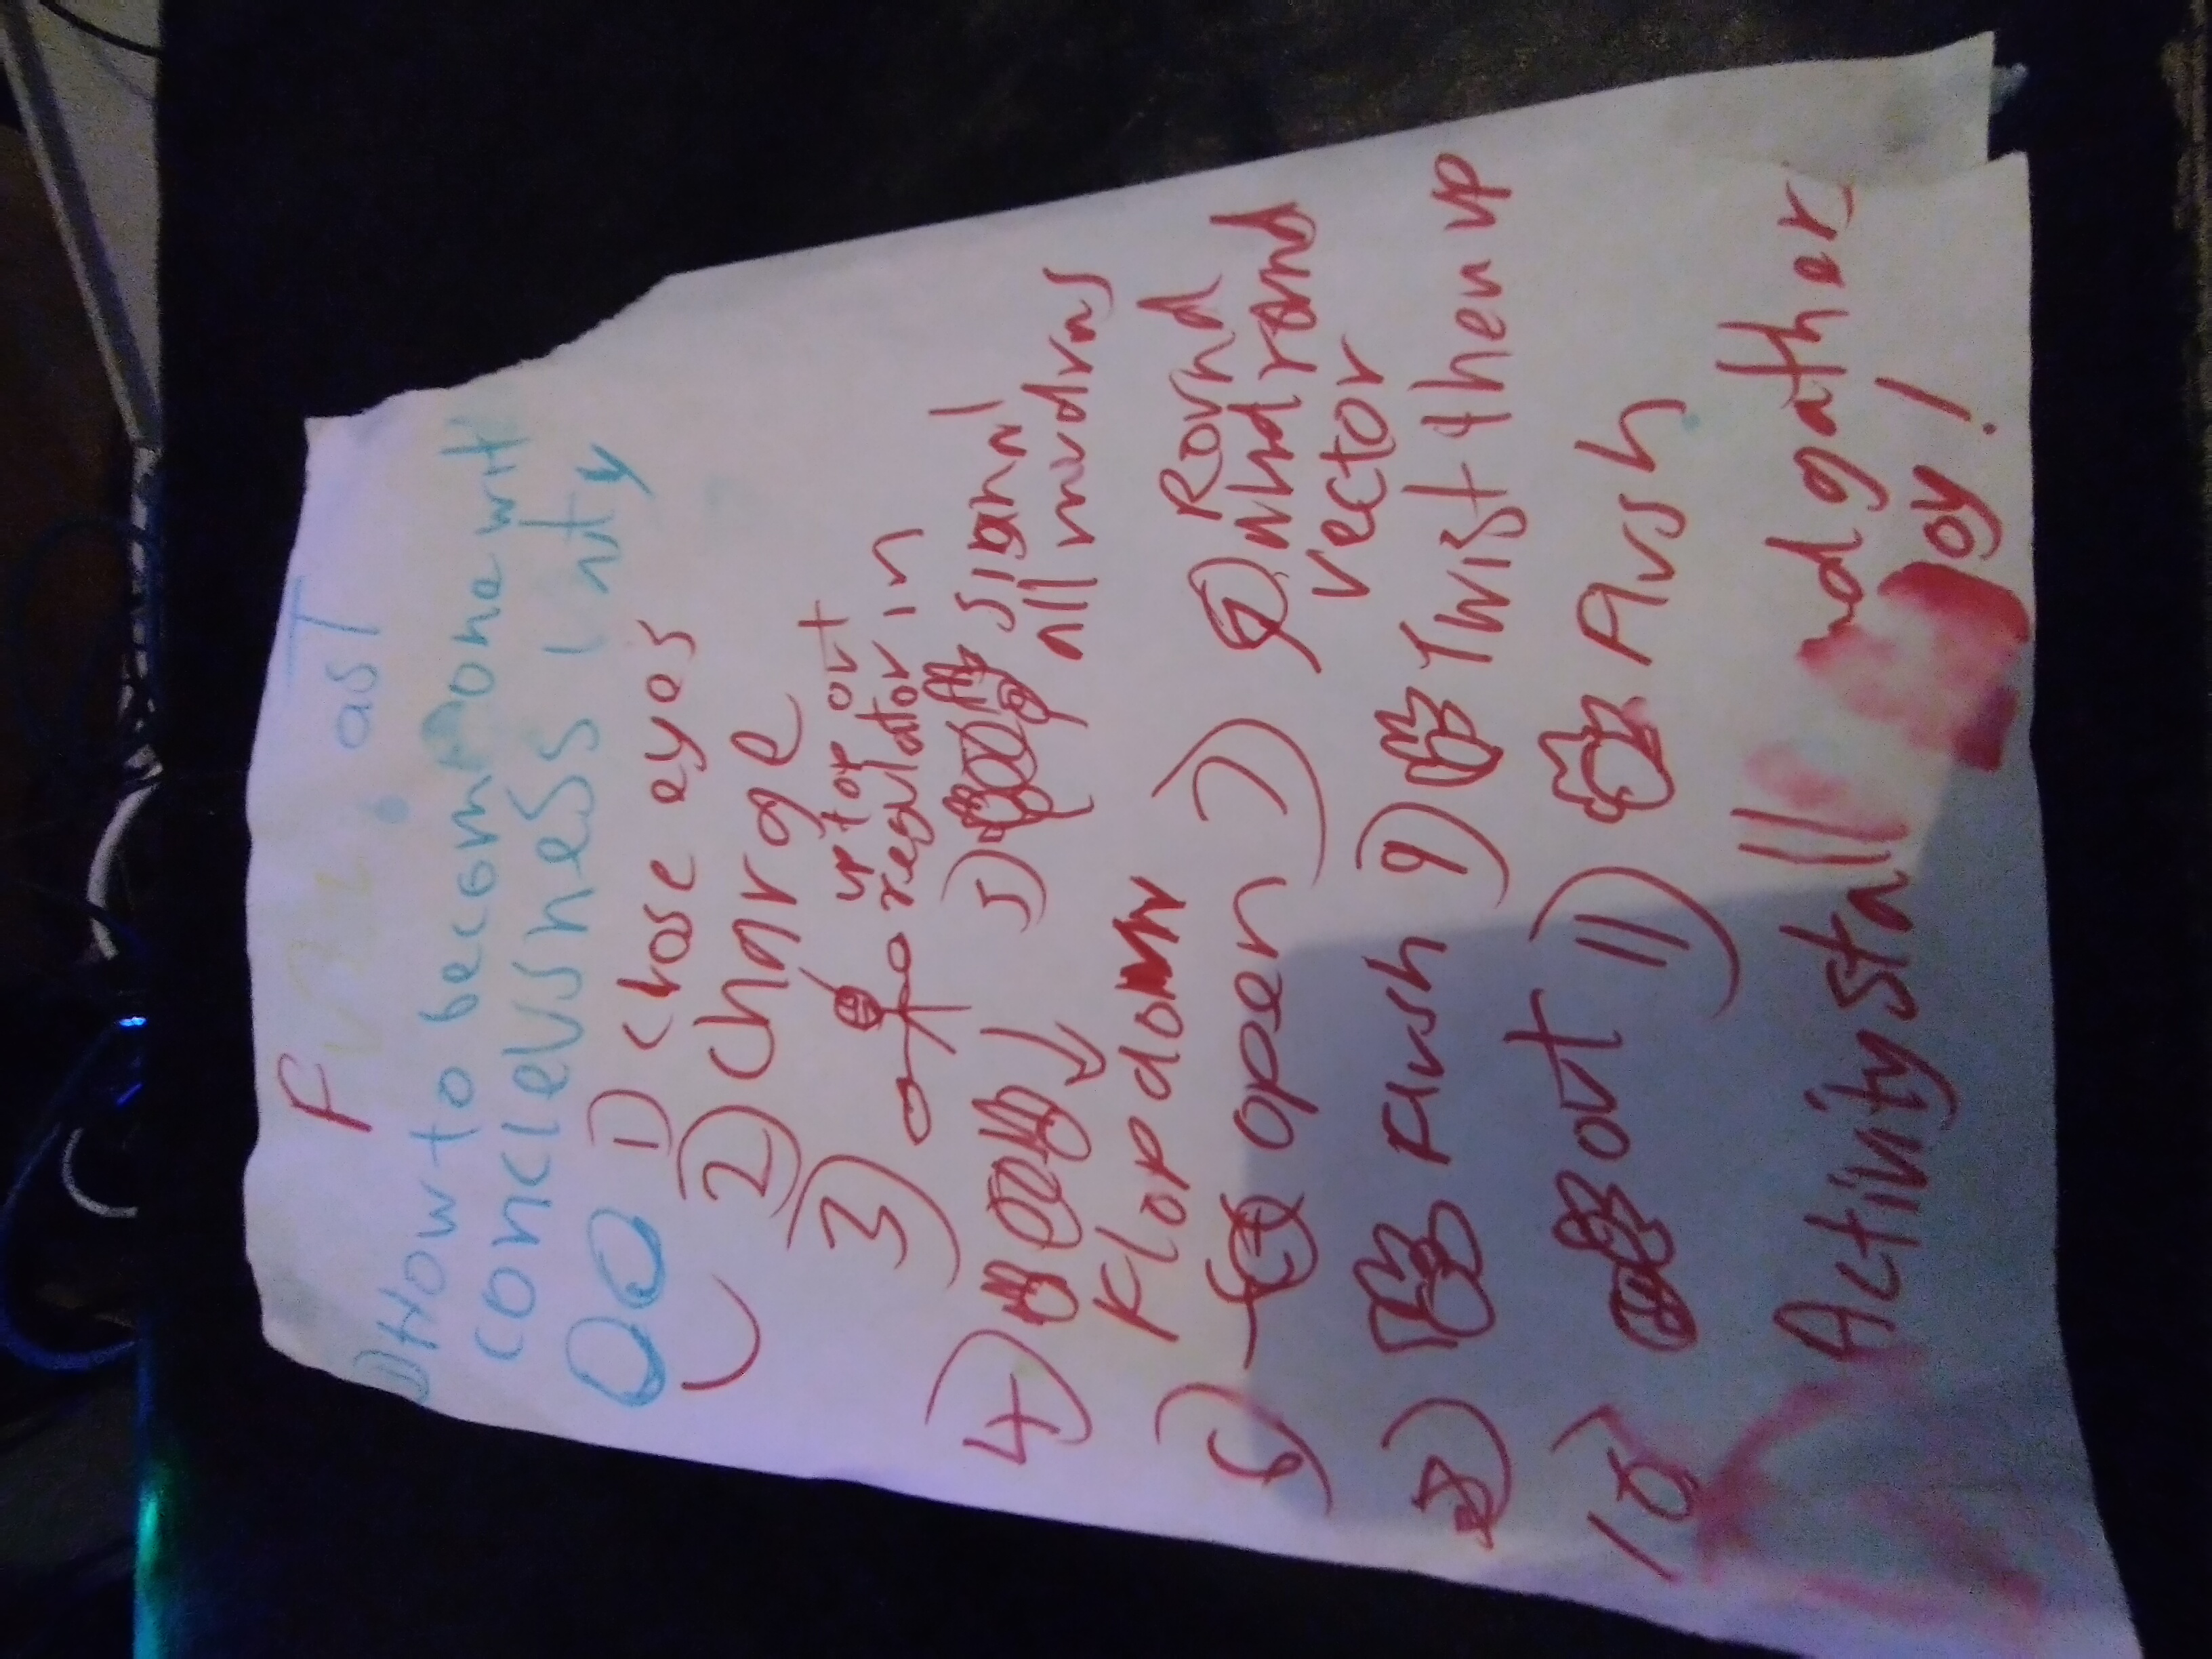 F as T
1) How to becom one wit
conclevshess inty
1) Chose eyes
2) Charge
3) up top out
regulator in
4) 5) signal
all mudras
Klop down
6) open 7) Rovnd
whd rond
vector
8) Flush 9) Twist then up
10) out 11) Flush
Activity stall nd gather
oy!